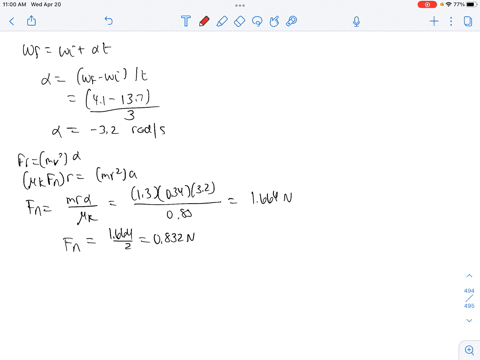 11:00 AM Wed Apr 20
77%
ωf = ωi + αt
α = (ωf - ωi) / t
= (4.1 - 13.7)
3
α = -3.2 rad/s
Fr = (mr²) α
(μk Fn) r = (mr²) a
Fn = mrα / μk = (1.3)(0.34)(3.2) / 0.85 = 1.664 N
Fn = 1.664 / 2 = 0.832 N
494
495